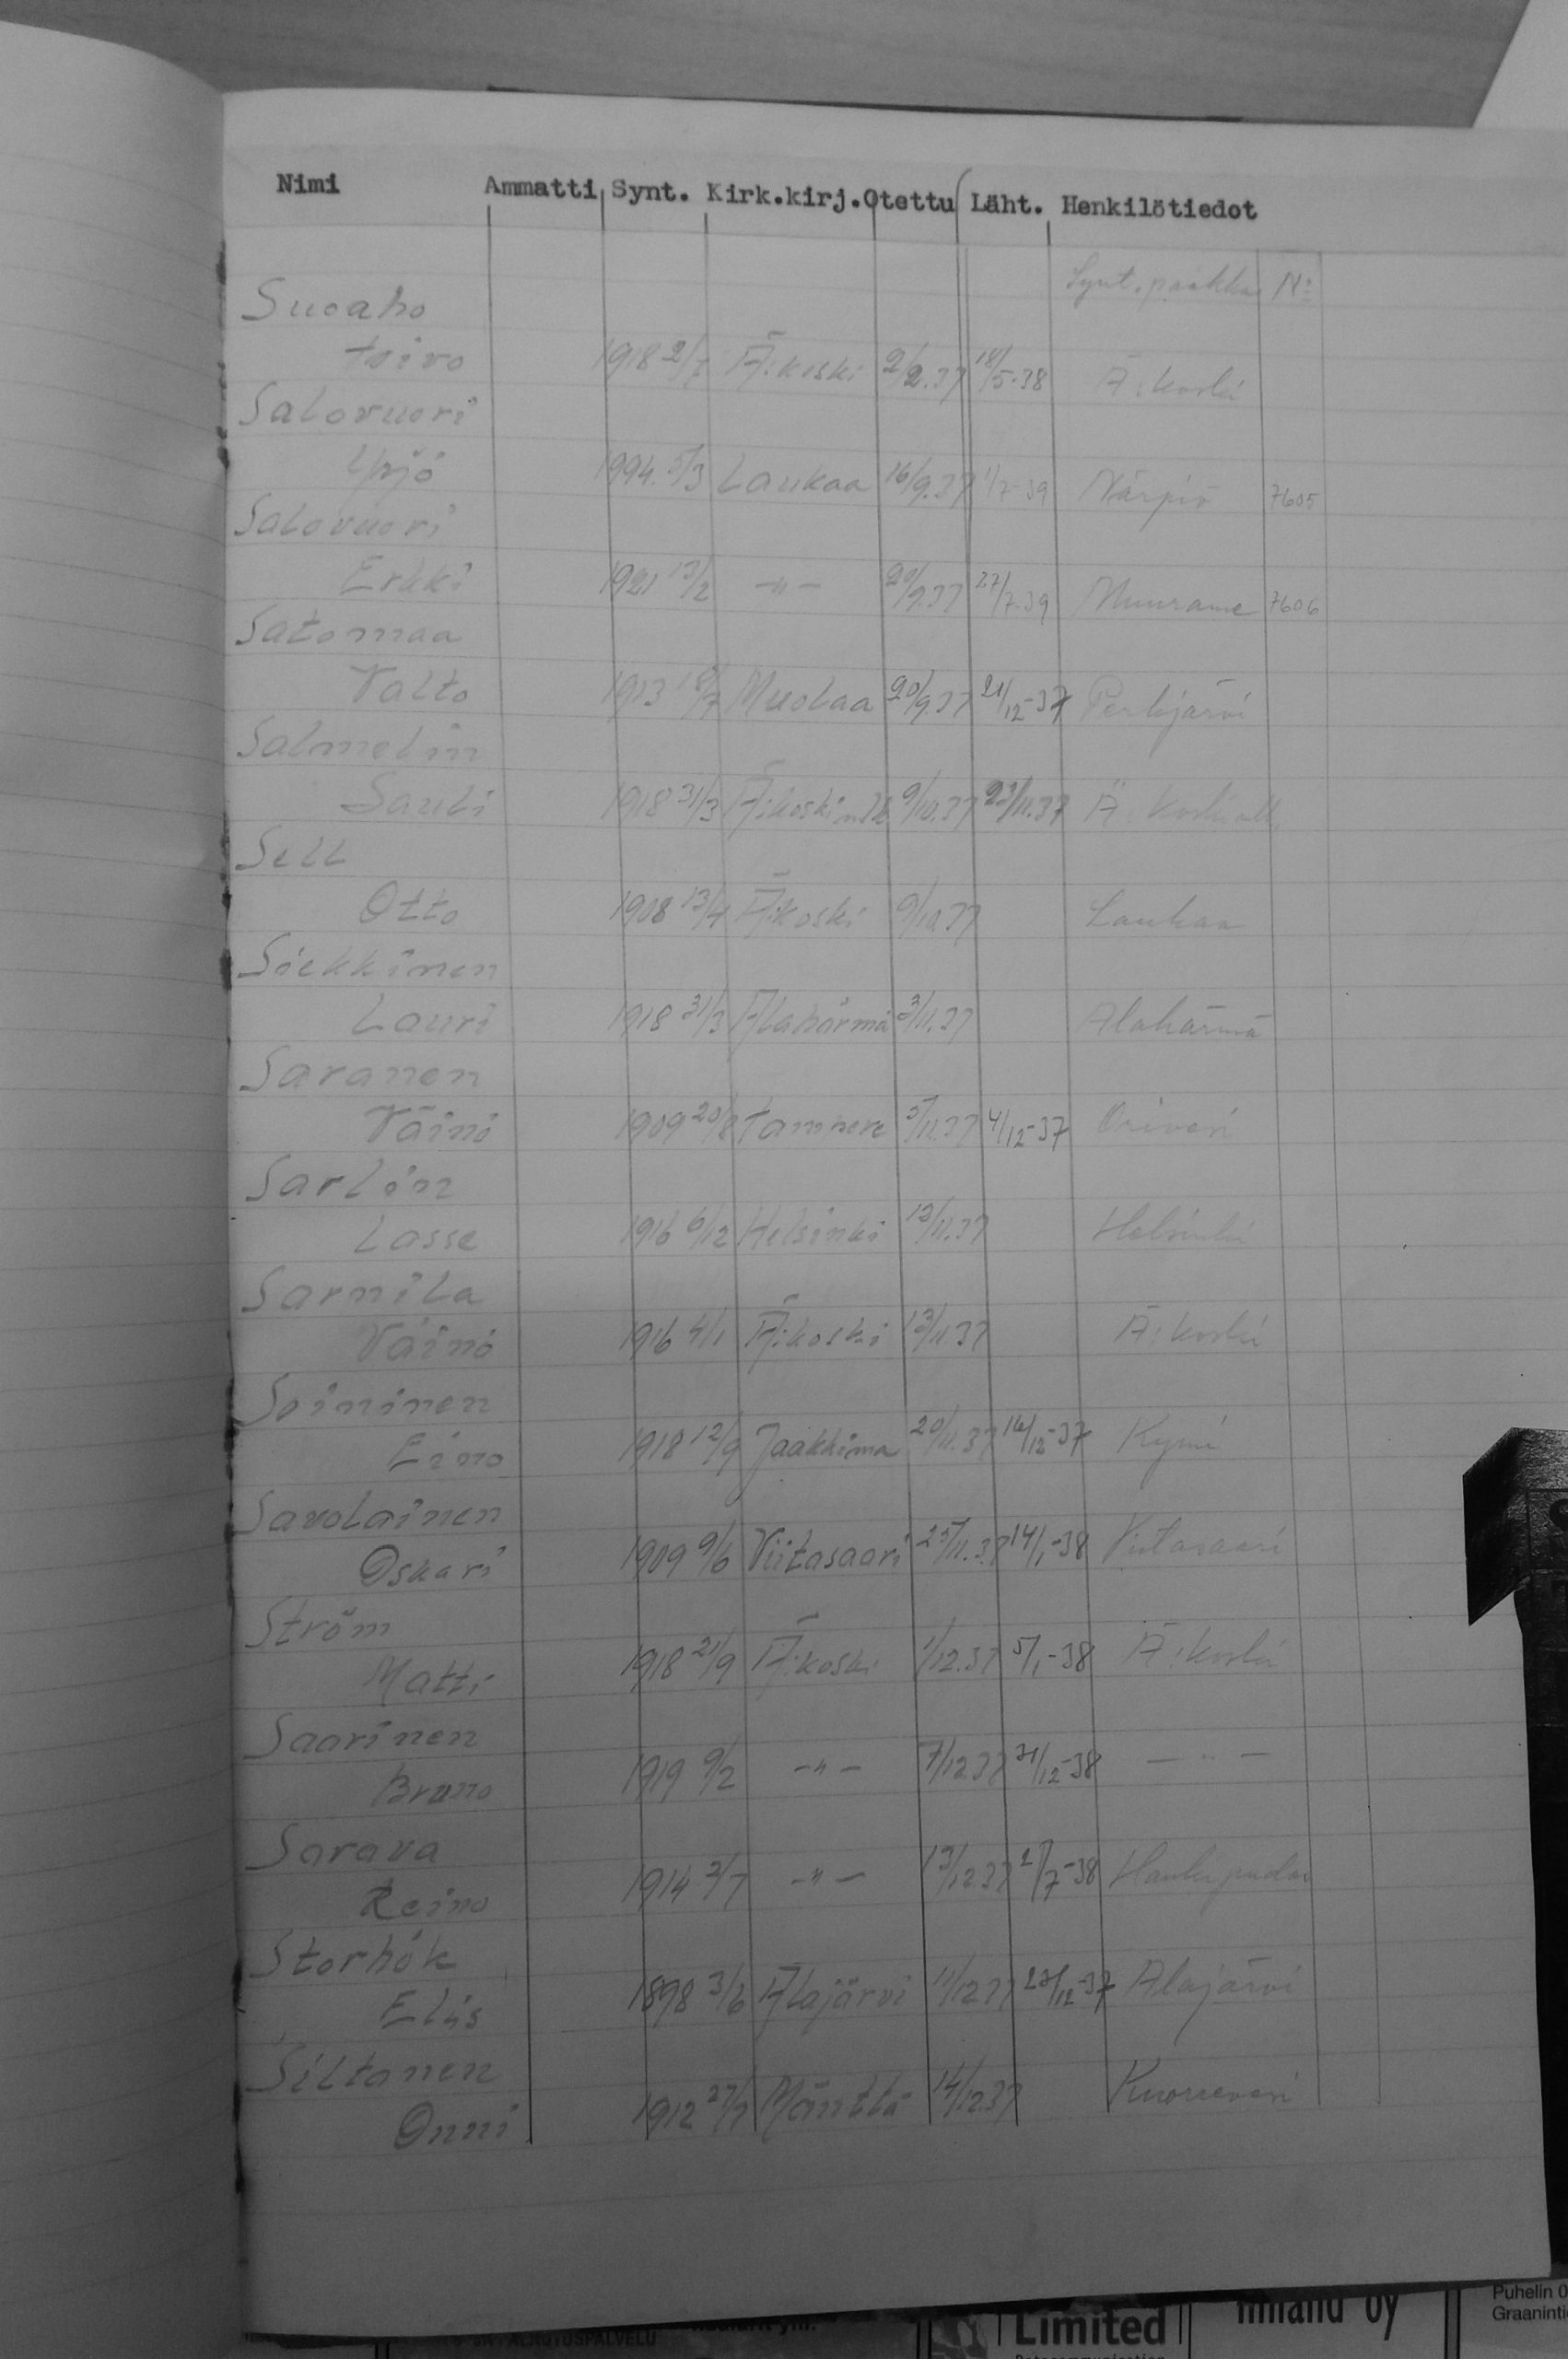 Nimi Ammatti Synt. Kirk.kirj. Otettu Läht. Henkilötiedot
Synt. paikka No
Suoaho
Toivo 1918 2/7 Ä:koski 2/2.37 18/5-38 Ä:koski
Salovuori
Yrjö 1994. 5/3 Laukaa 16/9.37 1/7-39 Närpiö 7605
Salovuori
Erkki 1921 13/2 -"- 20/9.37 27/7-39 Muurame 7606
Satomaa
Valto 1913 18/7 Muolaa 20/9.37 21/12-37 Perkjärvi
Salmelin
Sauli 1918 31/3 Ä:koski mlk 9/10.37 23/11.37 Ä:koski mlk
Sell
Otto 1908 13/4 Ä:koski 9/10.37 Laukaa
Siekkinen
Lauri 1918 31/3 Alahärmä 3/11.37 Alahärmä
Saranen
Väinö 1909 20/8 Tampere 5/11.37 4/12-37 Orivesi
Sarlin
Lasse 1916 6/12 Helsinki 13/11.37 Helsinki
Sarnila
Väinö 1916 4/1 Ä:koski 13/11.37 Ä:koski
Soininen
Eino 1918 12/9 Jaakkima 20/11.37 16/12-37 Kymi
Savolainen
Oskari 1909 9/6 Viitasaari 25/11.37 14/1-38 Viitasaari
Ström
Matti 1918 21/9 Ä:koski 1/12.37 5/1-38 Ä:koski
Saarinen
Bruno 1919 9/2 -"- 7/12.37 31/12-38 -"-
Sarava
Reino 1914 2/7 -"- 13/12.37 27/7-38 Haukipudas
Storhök
Elis 1898 3/6 Alajärvi 11/12.37 23/12-37 Alajärvi
Siltanen
Onni 1912 27/7 Mänttä 14/12.37 Kuorevesi
Limited
inland oy
Puhelin 0
Graaninti